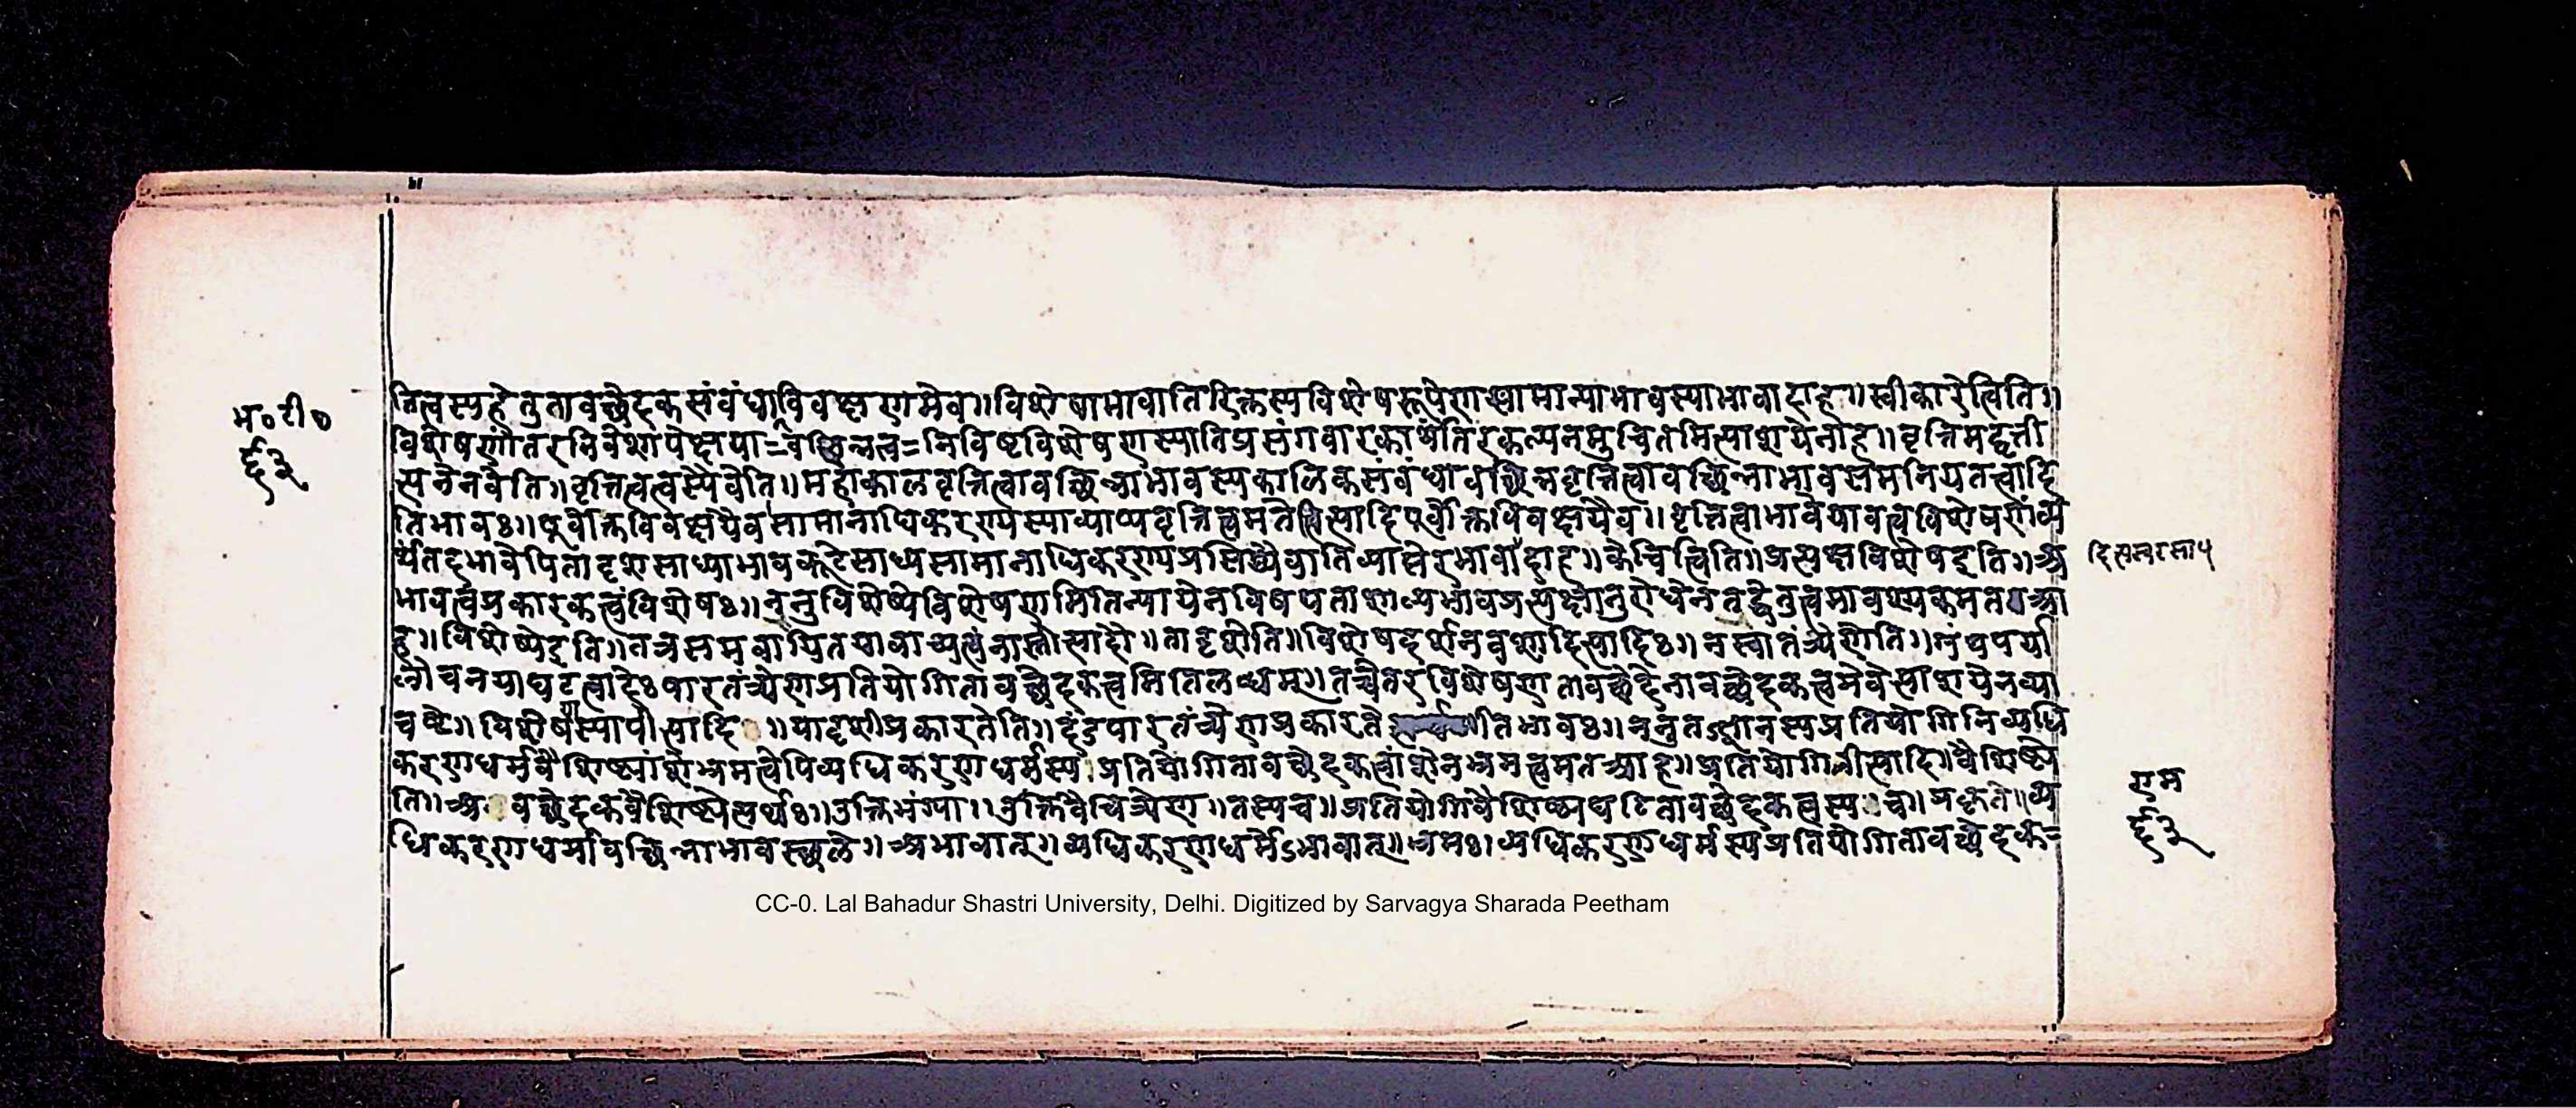 म॰ टी॰
६३
तित्वस्य हेतुतावच्छेदकसंबंधाविवक्षणमेव॥ विशेषाभावातिरिक्तस्य विशेषरूपेण सामान्याभावस्याभावादाह॥ स्वीकारेत्विति॥
विशेषणांतरनिवेशापेक्षया=वच्छिन्नत्व=निविष्टविशेषणस्यातिप्रसंगवारकार्थंतिरकल्पनमुचितमित्याशयेनाह॥ वृत्तिमद्वृत्ती
त्यनेनवेति॥ वृत्तित्वत्वस्यैवेति॥ महाकालवृत्तित्वावच्छिन्नाभावस्यकालिकसंबंधावच्छिन्नवृत्तित्वावच्छिन्नाभावसमनियतत्वादि
तिभावः॥ पूर्वोक्तविवक्षयैवसामानाधिकरण्यस्याव्याप्यवृत्तित्वमतेत्वित्यादिपूर्वोक्तविवक्षयैव॥ वृत्तित्वाभावेयावत्वविशेषणंव्य
र्थंतदभावेपितादृशसाध्याभावकूटेसाध्यसामानाधिकरण्यप्रसिद्ध्यैवातिव्याप्तेरभावादाह॥ केचित्त्विति॥ प्रत्यक्षविशेषइति॥ अ
भावत्वप्रकारकत्वंविशेषः॥ ननुविशेष्येविशेषणमितिन्यायेनविषयताशाल्यभावप्रत्यक्षानुरोधेनतद्धेतुत्वमावश्यकमतआ
ह॥ विशेष्येइति॥ तत्रसमवायितयावाच्यत्वंनास्तीत्यादौ॥ तादृशेति॥ विशेषदर्शनवशादित्यादिः॥ नस्वातंत्र्येणेति॥
लोचनयाघटत्वादेःपारतंत्र्येणप्रतियोगितावच्छेदकत्वमितिलब्धम्॥ तच्चैतरविशेषणतावच्छेदेनावच्छेदकत्वमेवेत्याशयेनव्या
चष्टे॥ विशेषस्यापीत्यादि॥ यादृशीप्रकारतेति॥ दंडपारतंत्र्येणप्रकारते तिभावः॥ ननु प्रतियोगिनिव्यधि
करणधर्मवैशिष्ट्यांशेभ्रमत्वेपिव्यधिकरणधर्मस्य प्रतियोगितावच्छेदकत्वांशेनभ्रमत्वमतआह॥ प्रतियोगिनीत्यादि॥ वैशिष्ट्ये
ति॥ अवच्छेदकवैशिष्ट्येत्यर्थः॥ उक्तिभंग्या॥ उक्तिवैचित्र्येण॥ तस्यच॥ प्रतियोगिवैशिष्ट्यघटितावच्छेदकत्वस्य च॥ प्रकृते॥ व्य
धिकरणधर्मावच्छिन्नाभावस्थले॥ अभावात्॥ व्यधिकरणधर्मेऽभावात्॥ भ्रमः॥ व्यधिकरणधर्मस्यप्रतियोगितावच्छेदक=
राम
६३
CC-0. Lal Bahadur Shastri University, Delhi. Digitized by Sarvagya Sharada Peetham